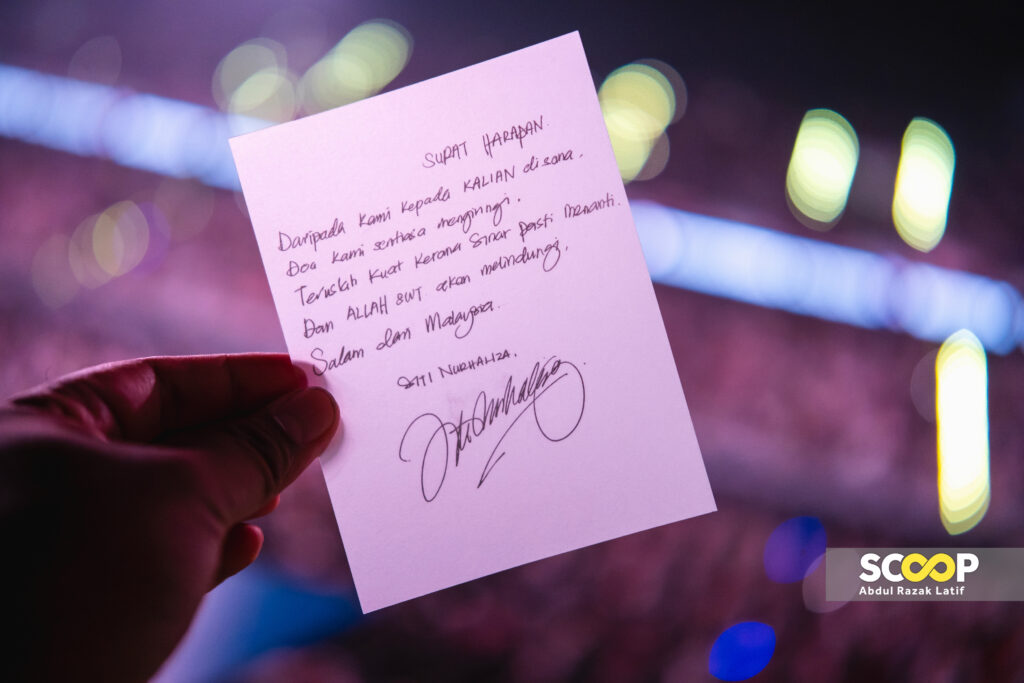 SURAT HARAPAN.
Daripada kami kepada KALIAN disana.
Doa kami sentiasa mengiringi.
Teruslah kuat kerana sinar pasti menanti.
Dan ALLAH SWT akan melindungi.
Salam dari Malaysia.
SITI NURHALIZA.
Siti Nurhaliza
SCOOP
Abdul Razak Latif